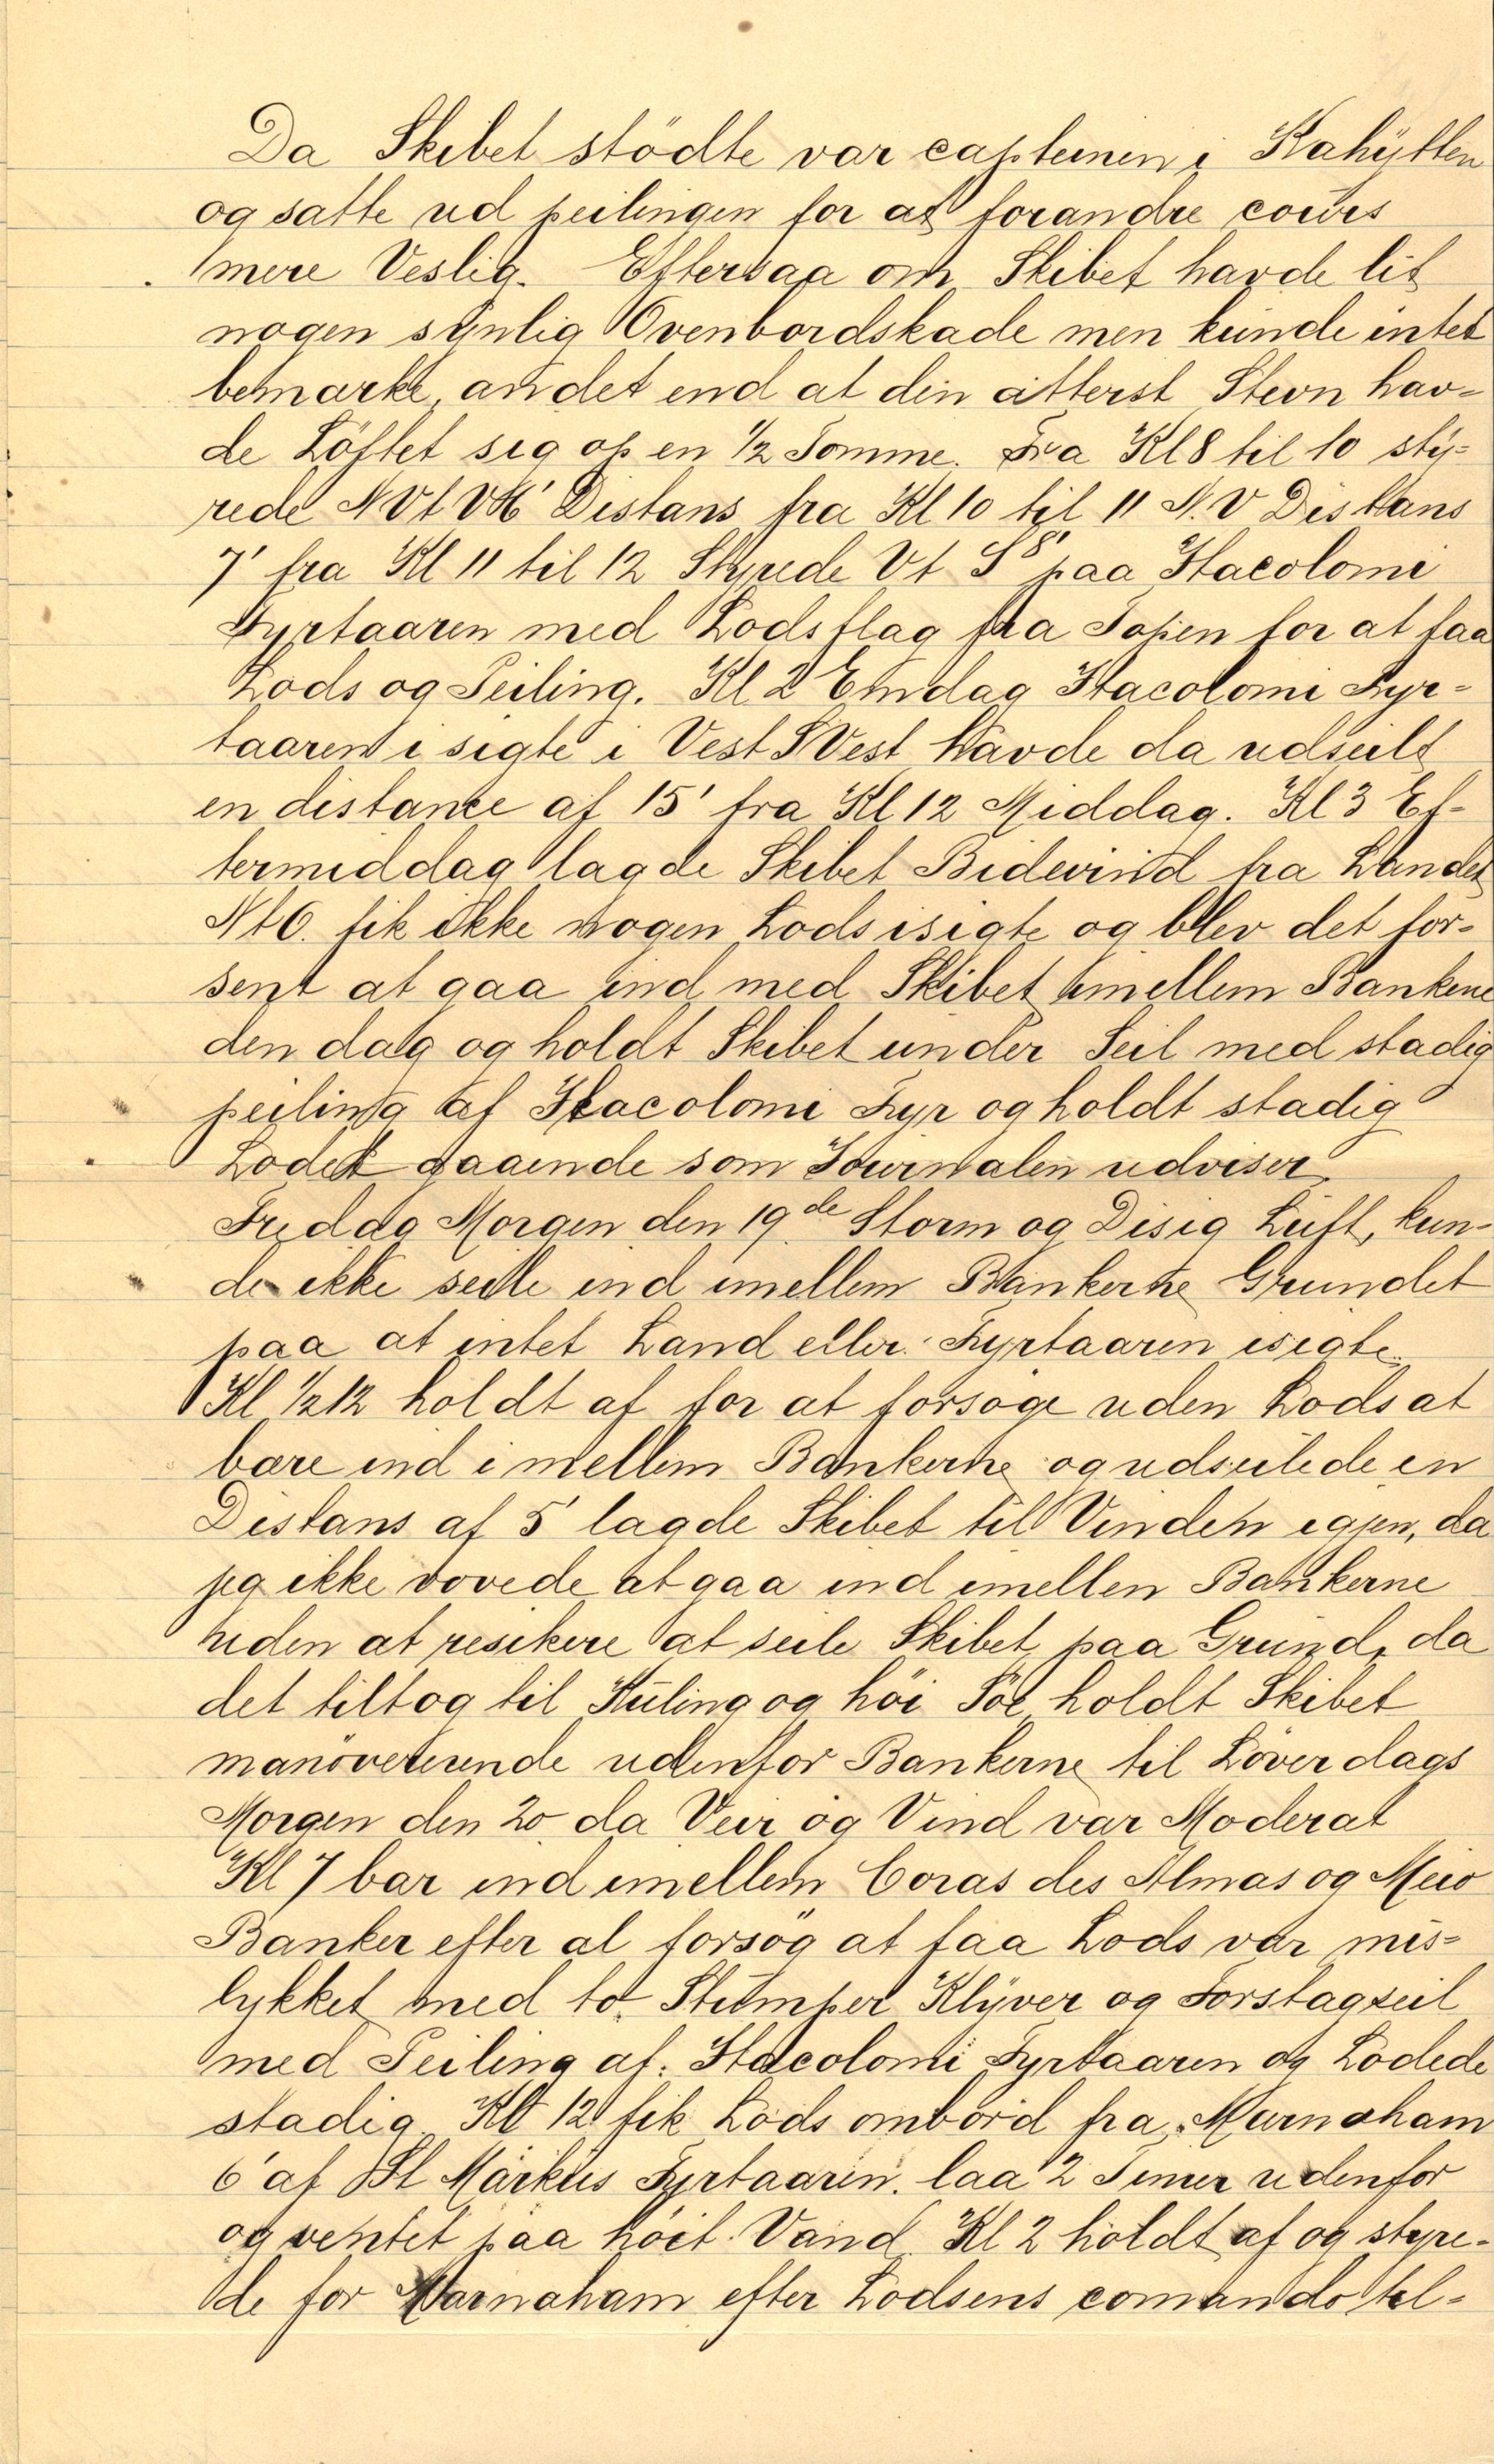 Da Skibet stödte var capteinen i Kahytten
og satte ud peilingen for at forandre cours
mere Veslig. Eftersaa om Skibet havde lit
nogen synlig Ovenbordskade men kunde intet
bemærke, andet end at den atterst Stevn hav=
de Löftet sig op en ½ Tomme. Fra Kl 8 til 10 sty=
rede NVtV 16' Distans fra Kl 10 til 11 N.V Distans
7' fra Kl 11 til 12 Styrede Vt S 8' paa Itacolomi
Fyrtaaren med Lodsflag fra Topen for at faa
Lods og Peiling. Kl 2 Emdag Itacolomi Fyr=
taaren i sigte i Vest S Vest havde da udseilt
en distance af 15' fra Kl 12 Middag. Kl 3 Ef=
termiddag lagde Skibet Bidevind fra Landet
NtO. fik ikke nogen Lods isigte og blev det for=
sent at gaa ind med Skibet imellem Bankene
den dag og holdt Skibet under Seil med stadig
peiling af Itacolomi Fyr og holdt stadig
Lodet gaaende som Journalen udviser.
Fredag Morgen den 19de Storm og Disig Luft, kun=
de ikke seile ind imellem Bankerne Grundet
paa at intet Land eller Fyrtaaren isigte.
Kl ½12 holdt af for at forsöge uden Lods at
bære ind imellem Bankerne og udseilede en
Distans af 5' lagde Skibet til Vinden igjen, da
jeg ikke vovede at gaa ind imellen Bankerne
uden at resikere at seile Skibet paa Grund, da
det tiltog til Kuling og höi Söe holdt Skibet
manövererende udenfor Bankerne til Löverdags
Morgen den 20 da Veir og Vind var Moderat
Kl 7 bar ind imellem Coras des Almas og Meio
Banker efter al forsög at faa Lods var mis=
lykket med to Stumper Klyver og Forstagseil
med Peiling af Itacolomi Fyrtaaren og Lodede
stadig Kl 12 fik Lods ombord fra Marnaham
6' af St Markus Fyrtaaren. laa 2 Timer udenfor
og ventet paa höit Vand. Kl 2 holdt af og styre=
de for Marnaham efter Lodsens comando til=